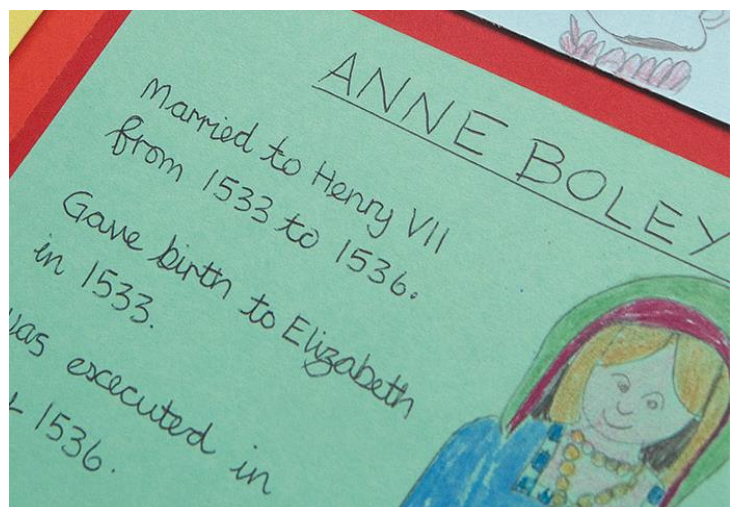 ANNE BOLEY
Married to Henry VII
from 1533 to 1536.
Gave birth to Elizabeth
in 1533.
was excecuted in
1536.